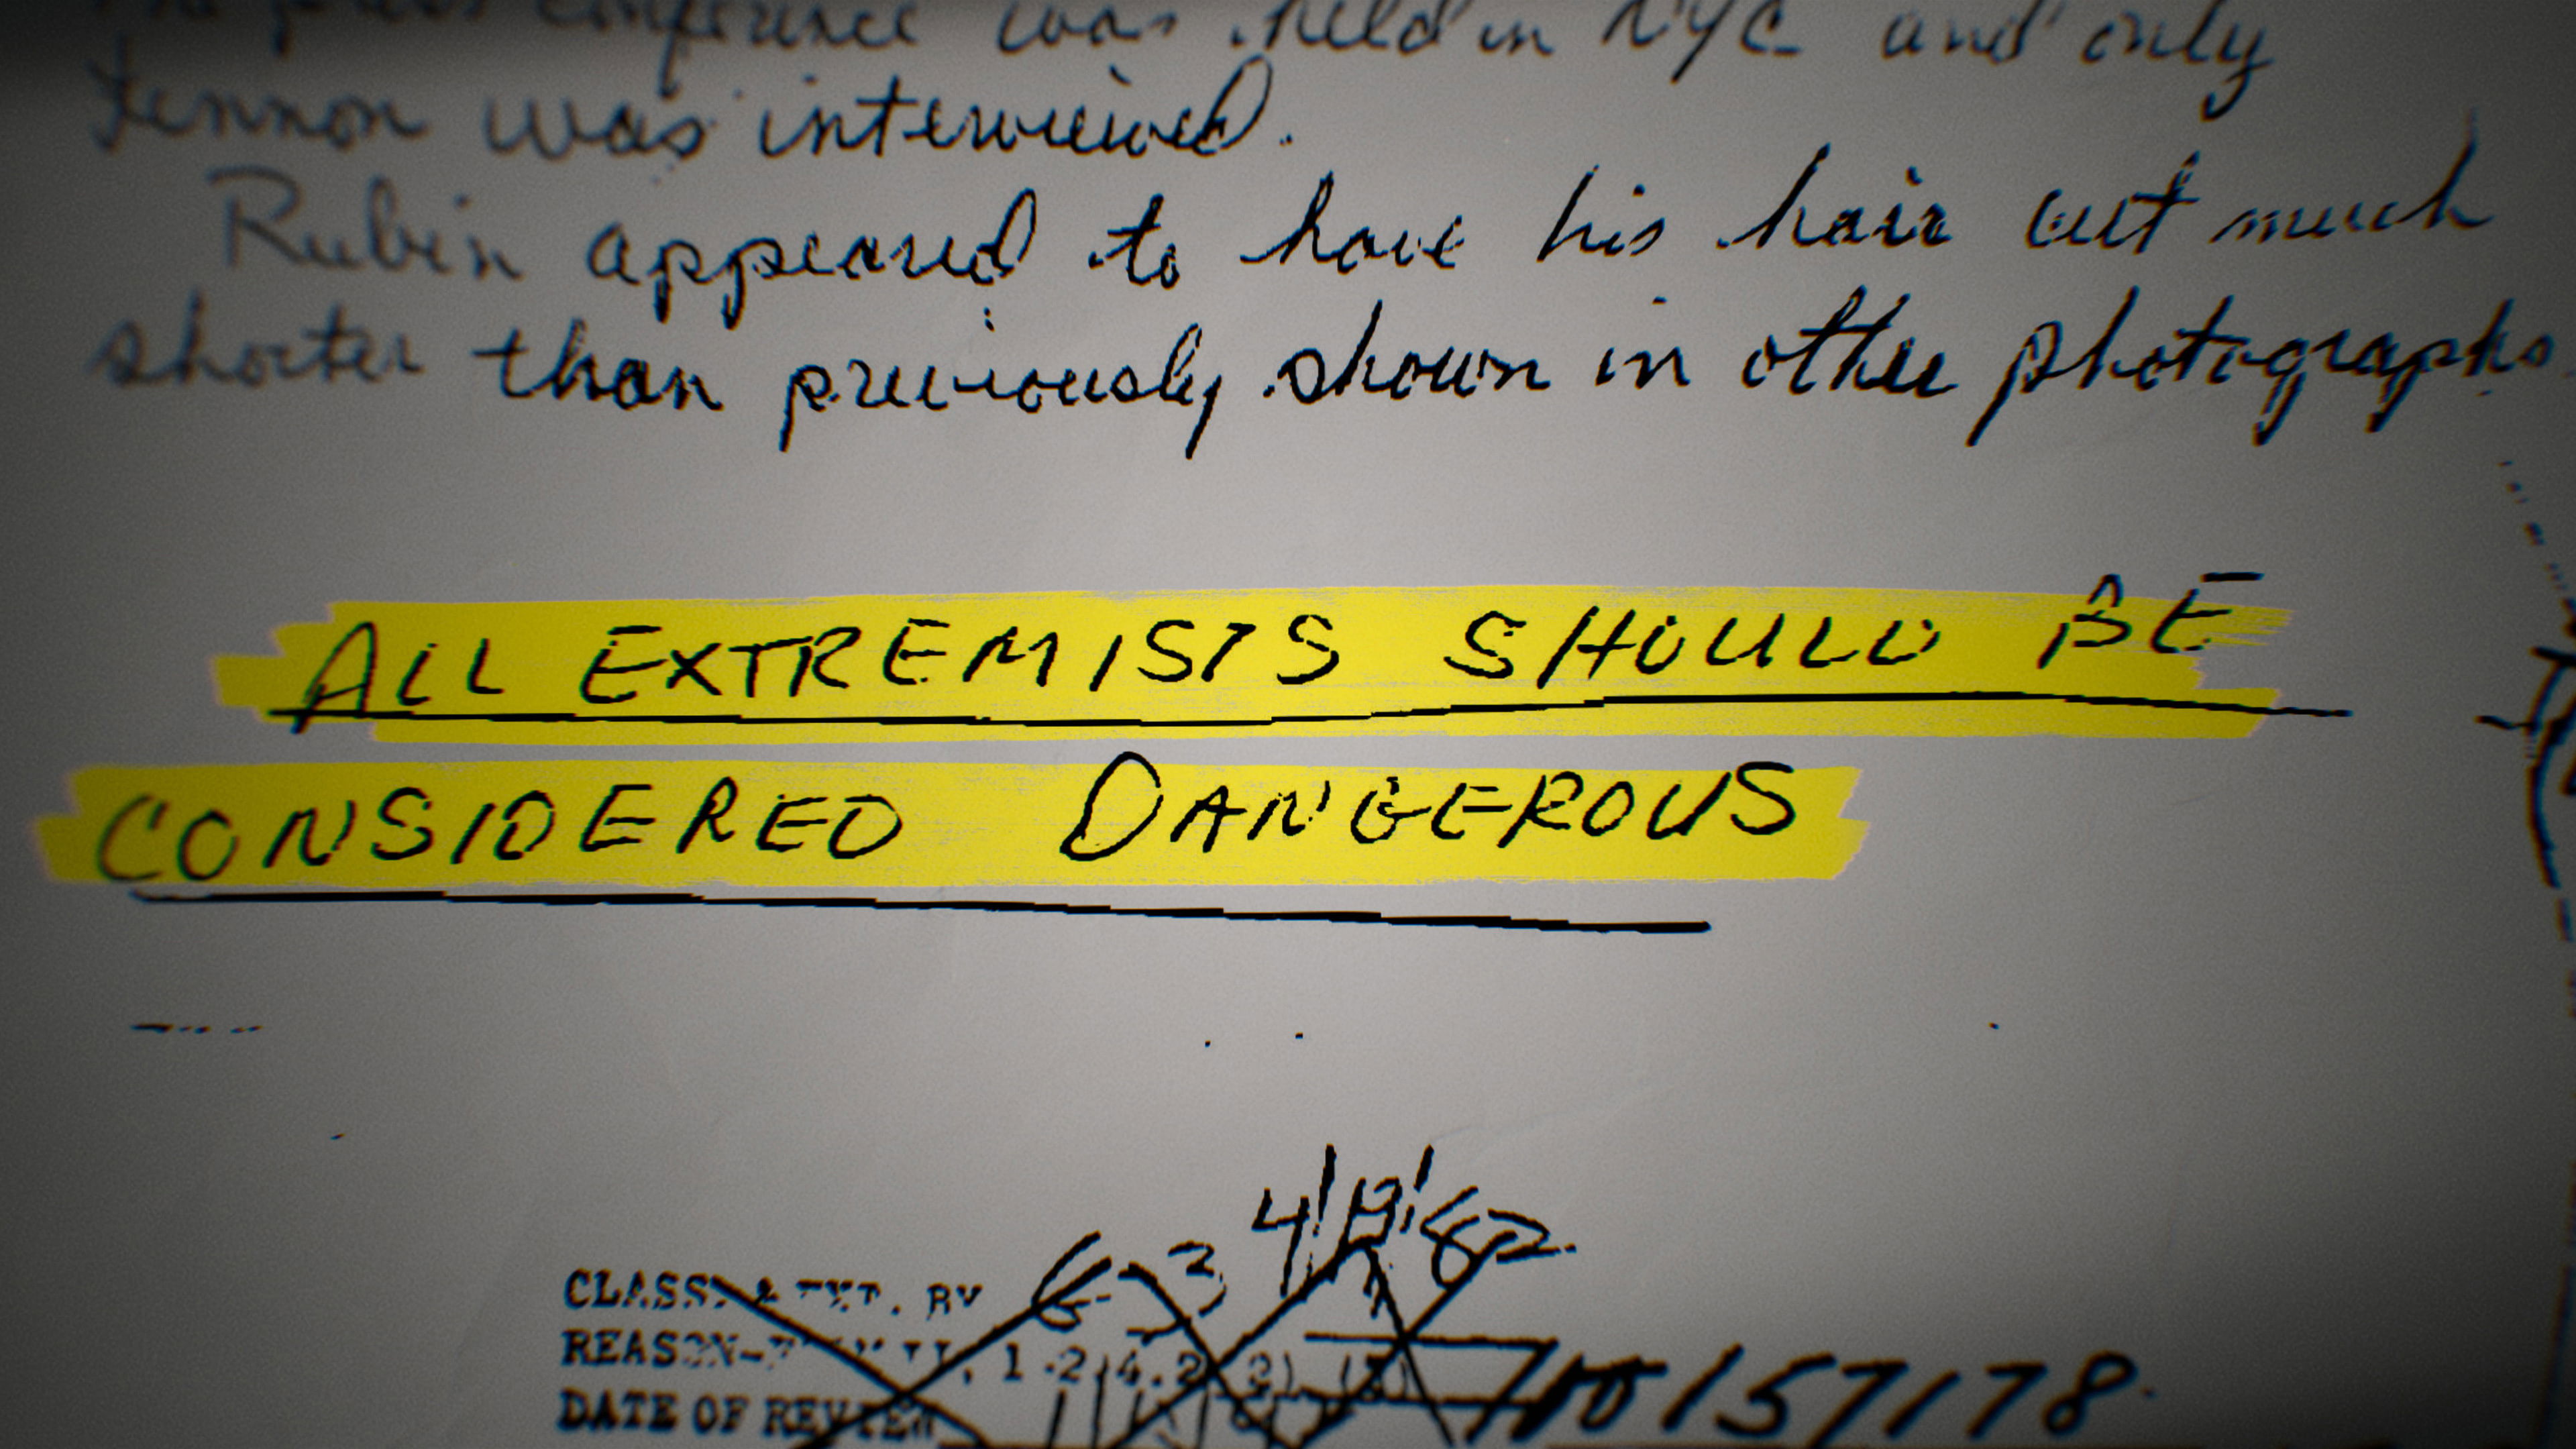 press conference was held in NYC and only
Lennon was interviewed.
Rubin appeared to have his hair cut much
shorter than previously shown in other photographs.
ALL EXTREMISTS SHOULD BE
CONSIDERED DANGEROUS
4/13/82
CLASS. & EXT. BY
REASON- 1-2.4.2
DATE OF REVIEW
100157178